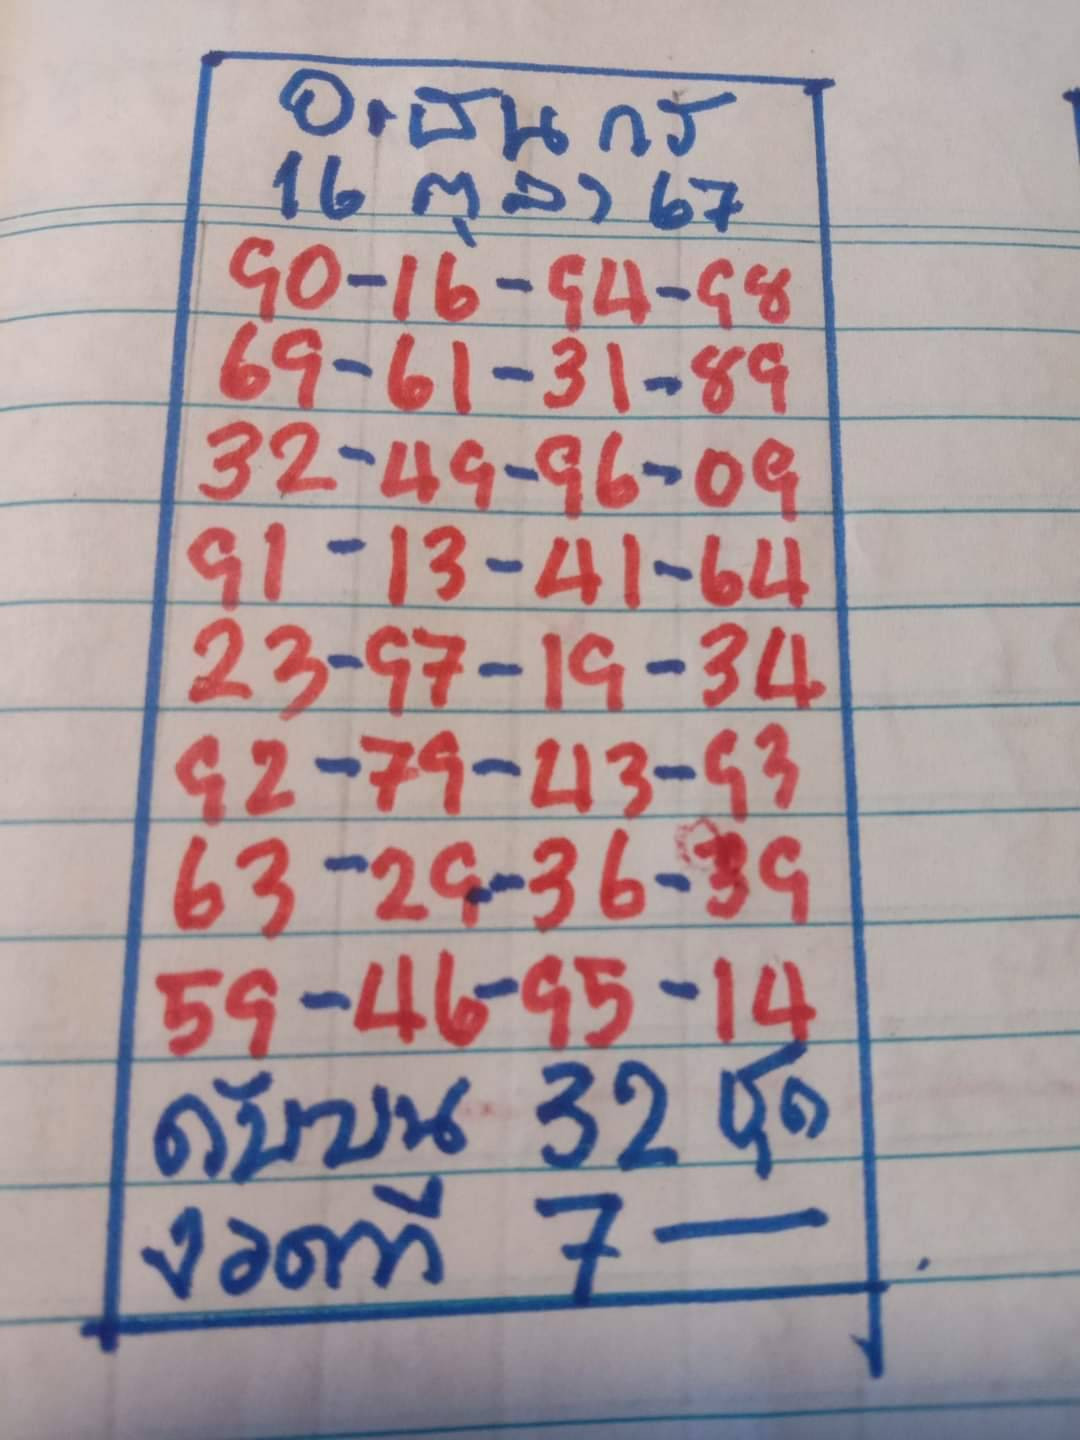 อ.ธันกร
16 ตุลา 67
90-16-94-98
69-61-31-89
32-49-96-09
91-13-41-64
23-97-19-34
92-79-43-93
63-29-36-39
59-46-95-14
ดับบน 32 ชุด
งวดที่ 7 —